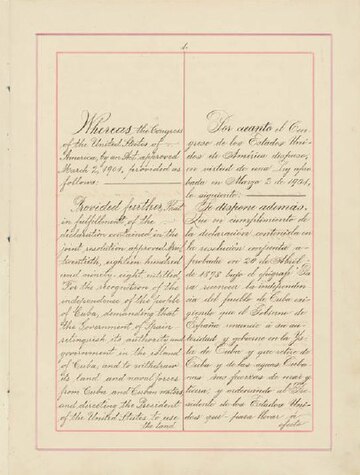 1.
Whereas the Congress
of the United States of
America, by an Act approved
March 2, 1901, provided as
follows:
Provided further, That
in fulfillment of the
declaration contained in the
joint resolution approved April
twentieth, eighteen hundred
and ninety-eight entitled,
For the recognition of the
independence of the people
of Cuba, demanding that
the Government of Spain
relinquish its authority and
government in the island
of Cuba, and to withdraw
its land and naval forces
from Cuba and Cuban waters,
and directing the President
of the United States to use
the land
Por cuanto el Con-
greso de los Estados Uni-
dos de América dispuso,
en virtud de una Ley apro-
bada en Marzo 2 de 1901,
lo siguiente:
Se dispone ademas,
Que en cumplimiento de
la declaración contenida en
la resolución conjunta a-
probada en 20 de Abril
de 1898 bajo el epígrafe "Pa-
ra reconocer la independen-
cia del pueblo de Cuba exi-
giendo que el Gobierno de
España renuncie a su au-
toridad y gobierno en la Is-
la de Cuba y que retire de
Cuba y de las aguas Cuba-
nas sus fuerzas de mar y
tierra, y ordenando al Pre-
sidente de los Estados Uni-
dos que para llevar a
efecto